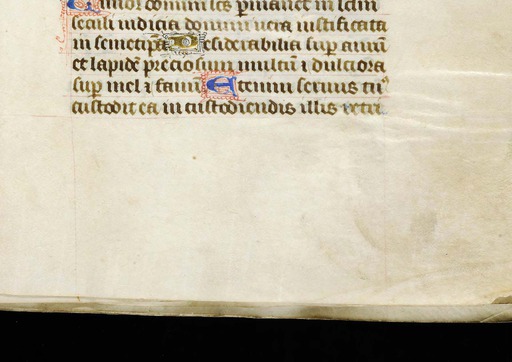 Timor domini scs pmanet in sclm
seculi iudicia domini uera iustificata
in semetipa Desiderabilia sup aurū
et lapidē preciosum multū ⁊ dulciora
sup mel ⁊ fauū Etenim seruus tu᷒
custodit ea in custodiendis illis retri